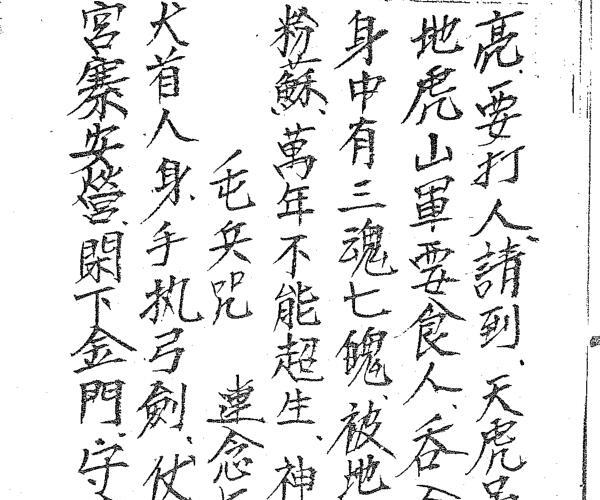 亮、要打人、請到、天虎
地虎山軍要食人、吞
身中有三魂七魄、被地
粉蘇、萬年不能超生、神
屯兵咒 連念
犬首人身、手执弓劍、仗
宮寨安營、閑下金門、守